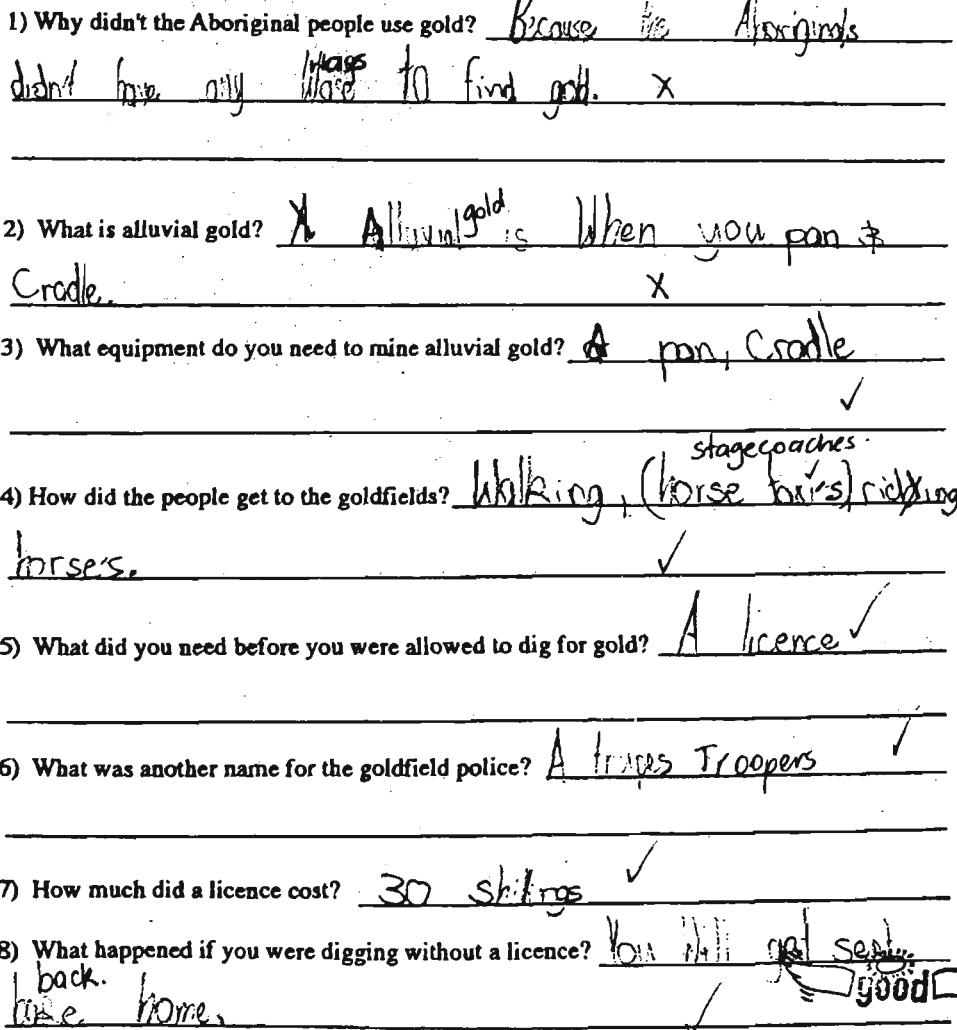 1) Why didn't the Aboriginal people use gold? Because the Aboriginals
ways
didn't have any to find gold. X
2) What is alluvial gold? Alluvial gold is When you pan &
Cradle. X
3) What equipment do you need to mine alluvial gold? A pan, Cradle
✓
stagecoaches.
4) How did the people get to the goldfields? Walking, (horse taxi's) ridding
horse's. ✓
5) What did you need before you were allowed to dig for gold? A licence ✓
6) What was another name for the goldfield police? A Troopers ✓
7) How much did a licence cost? 30 shillings ✓
8) What happened if you were digging without a licence? You will get sent
back.
home. ✓ good